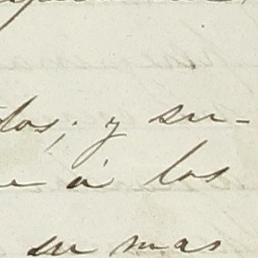 dos; y su-
á los
su mas